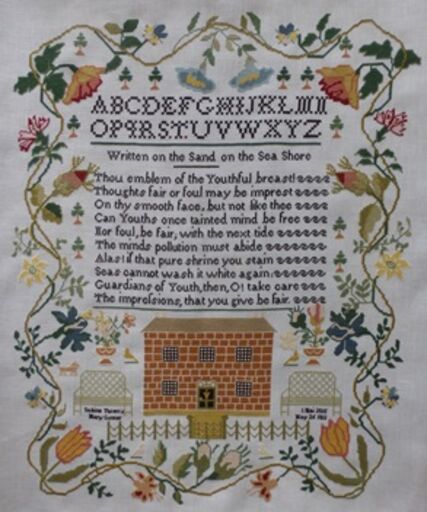 ABCDEFGHIJKLMN
OPQRSTUVWXYZ
Written on the Sand on the Sea Shore
Thou emblem of the Youthful breast!
Thoughts fair or foul may be imprest
On thy smooth face, but not like thee
Can Youths once tainted mind be free
Nor foul, be fair, with the next tide
The minds pollution must abide
Alas! if that pure shrine you stain
Seas cannot wash it white again:
Guardians of Youth, then, O! take care
The impressions, that you give be fair.